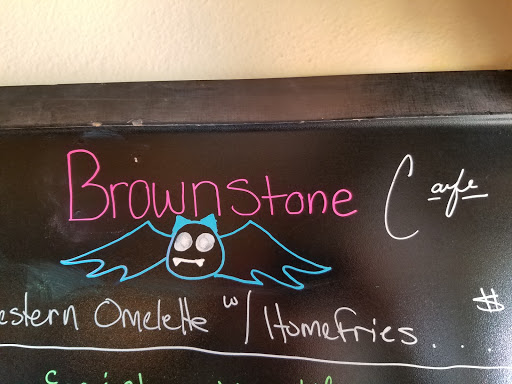 Brownstone Cafe
estern Omelette w/ Homefries... $